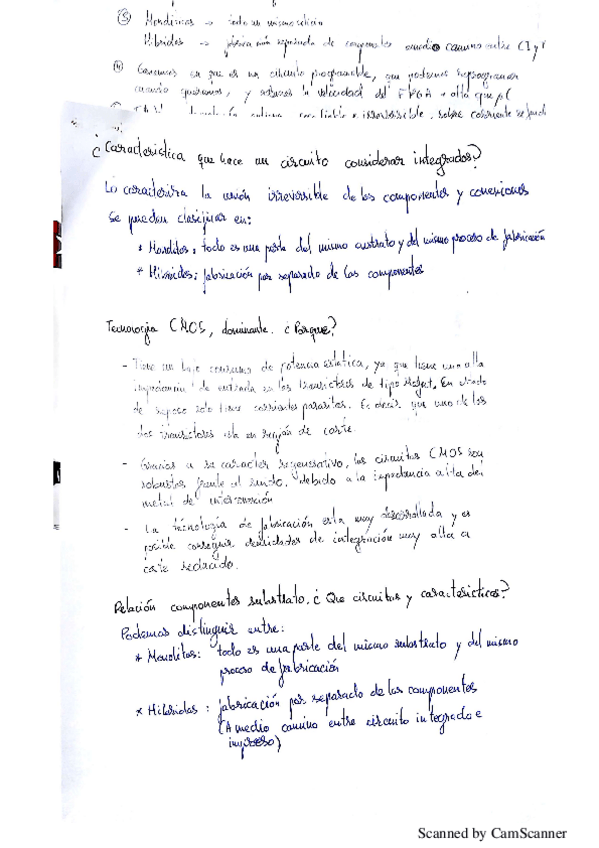 ③ Monolíticos → todo es mismo silicio
Híbridos → fabricación separada de componentes a medio camino entre CI y
④ es un circuito programable, que podemos reprogramar
cuando queramos, y
¿Característica que hace un circuito considerar integrados?
Lo caracteriza la unión irreversible de los componentes y conexiones
se puedan clasificar en:
* Monolitos: todo es una parte del mismo sustrato y del mismo proceso de fabricación
* Híbridos: fabricación por separado de los componentes
Tecnología CMOS, dominante. ¿Porque?
- Tiene un bajo consumo de potencia estática, ya que tiene una alta
impedancia de entrada en los transistores de tipo Mosfet. En estado
de reposo solo tiene corrientes parásitas. Es decir, que uno de los
dos transistores está en región de corte.
- Gracias a su caracter regenerativo, los circuitos CMOS son
robustos frente al ruido, debido a la impedancia alta del
metal de
- La tecnología de fabricación esta muy desarrollada y es
posible conseguir densidades de integración muy alta a
coste reducido.
Relación componentes substrato. ¿Que circuitos y caracteristicas?
Podemos distinguir entre:
* Monolitos: todo es una parte del mismo substrato y del mismo
proceso de fabricación
* Hibridos: fabricación por separado de los componentes
(A medio camino entre circuito integrado e
impreso)
Scanned by CamScanner